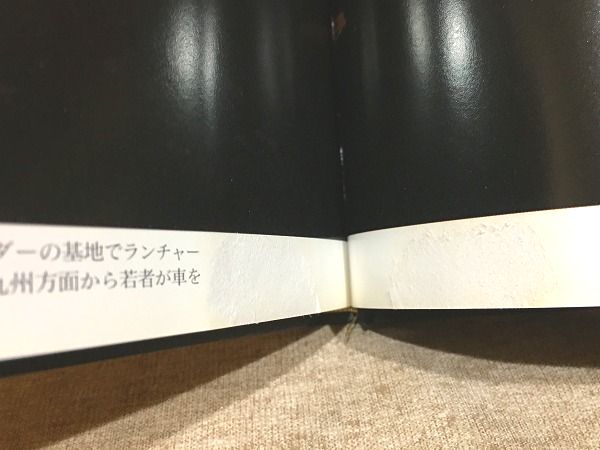 ダーの基地でランチャー
九州方面から若者が車を